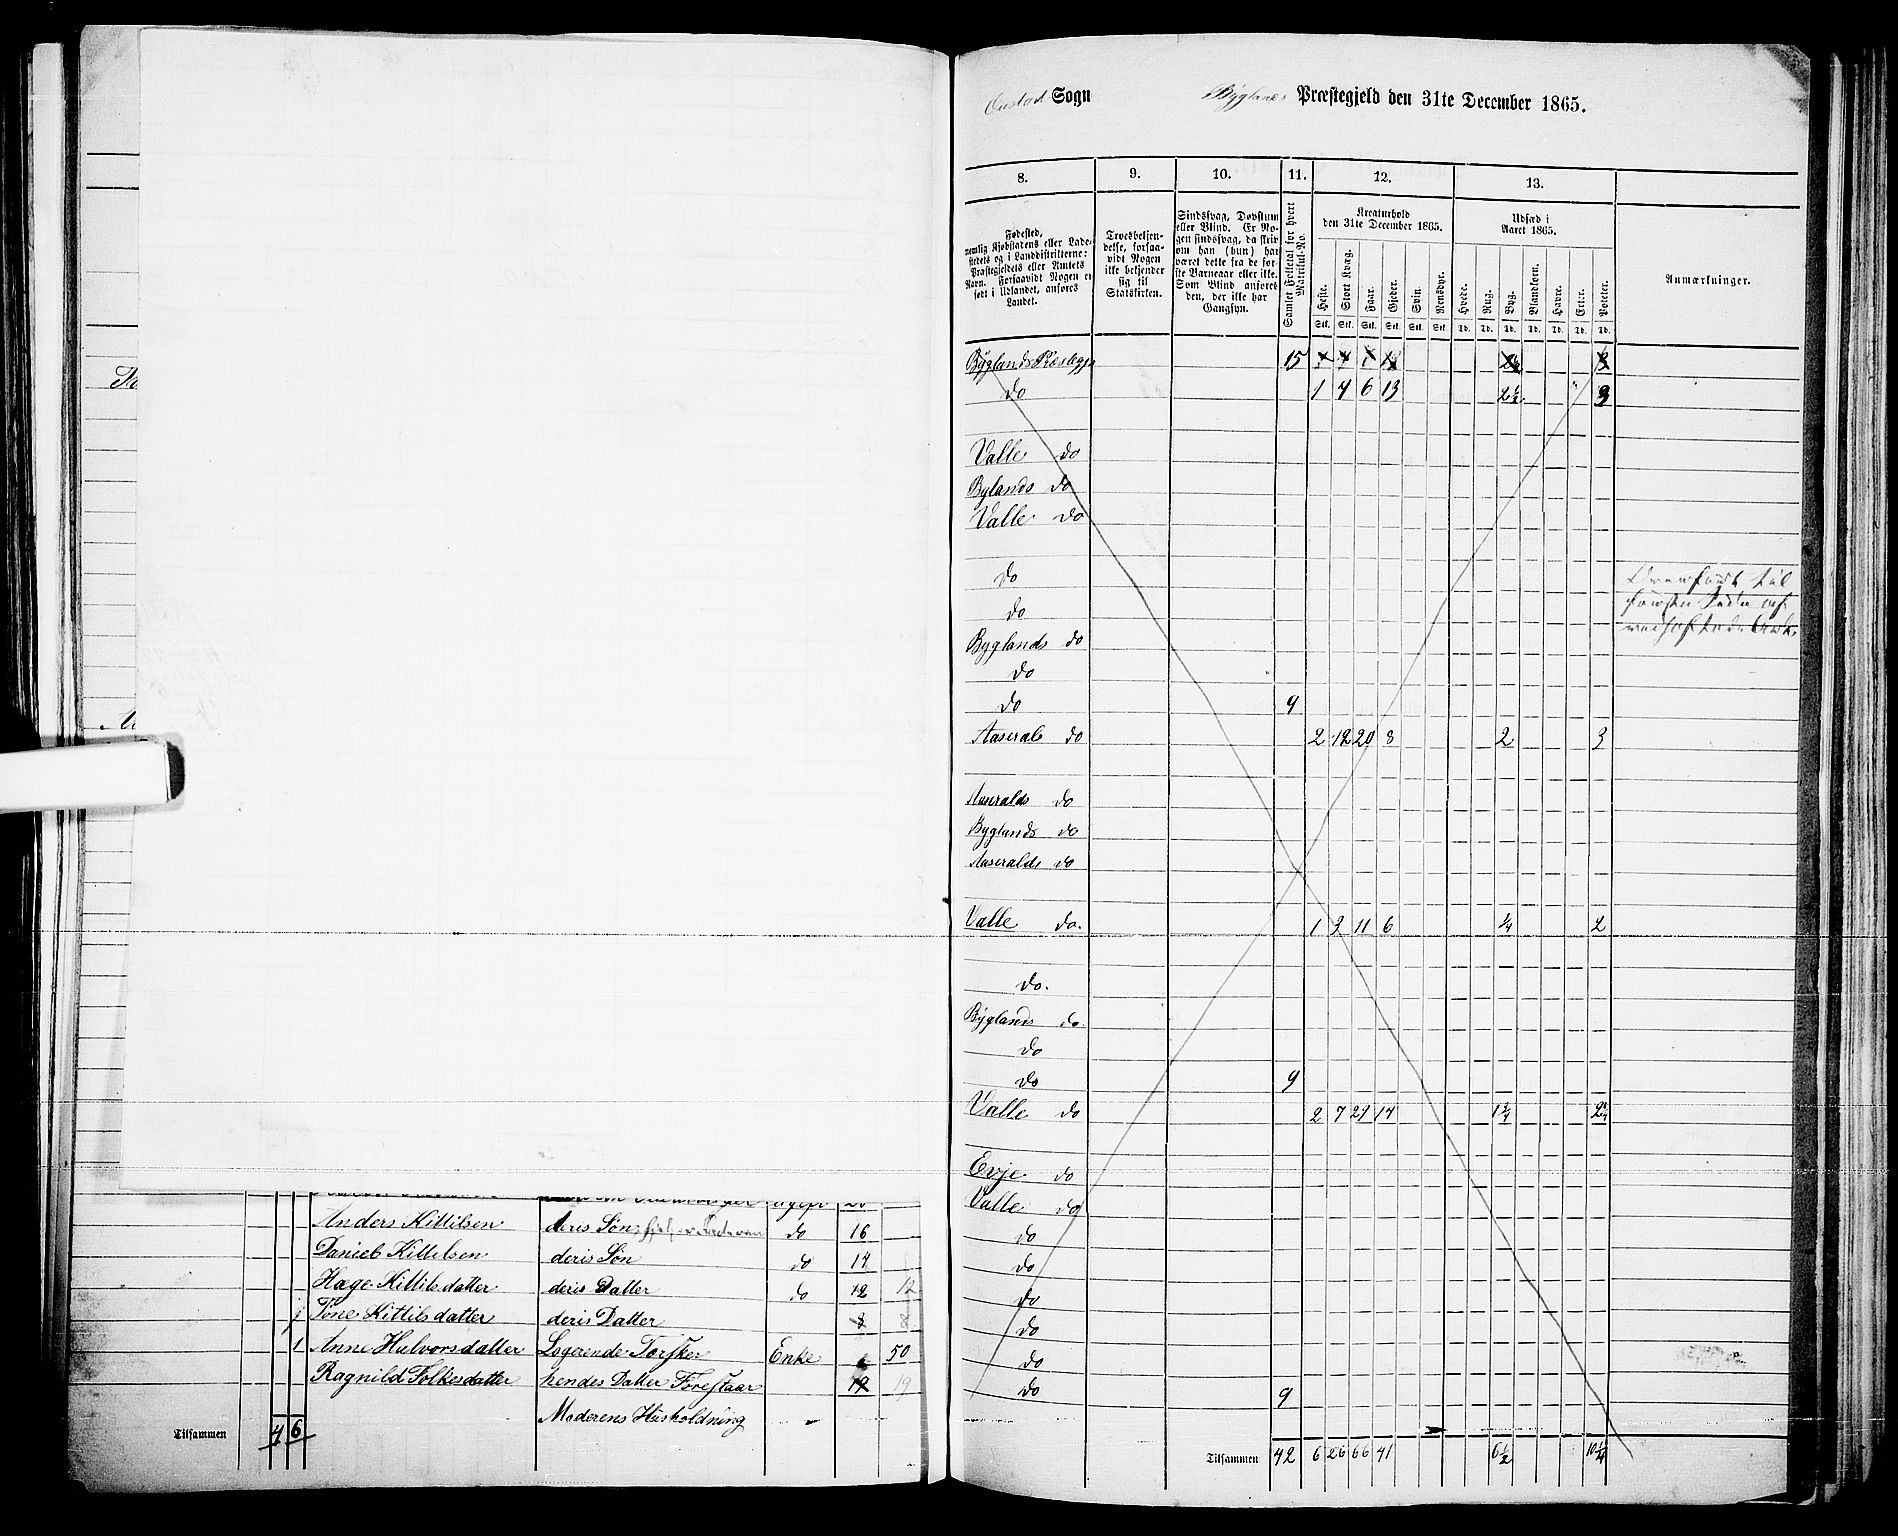 Austad Sogn
Byglands Præstegjeld den 31te December 1865.
8. 9. 10. 11. 12. 13.
Fødested, nemlig Kjøbstadens eller Ladestedets og i Landdistrikterne: Præstegjeldets eller Amtets Navn. Forsaavidt Nogen er født i Udlandet, anføres Landet.
Troesbekjendelse, forsaavidt Nogen ikke bekjender sig til Statskirken.
Sindssvag, Døvstum eller Blind. Er Nogen sindssvag, da skriv om han (hun) har været dette fra de første Barneaar eller ikke. Som Blind anføres den, der ikke har Gangsyn.
Samlet Folketal for hvert Matrikul-No.
Kreaturhold den 31te December 1865.
Heste. Stort Kvæg. Faar. Gjeder. Svin. Rensdyr.
Stk. Stk. Stk. Stk. Stk. Stk.
Udsæd i Aaret 1865.
Hvede. Rug. Byg. Blandkorn. Havre. Erter. Poteter.
Td. Td. Td. Td. Td. Td. Td.
Anmærkninger.
Byglands Præstegj. 15
do 1 4 6 13 2½ 3
Valle do
Bylands do
Valle do
do
do
Byglands do
do
do 9
Aaserals do 2 12 20 8 2 3
Aaseralds do
Byglands do
Aaseralds do
Valle do. 1 3 11 6 ¾ 2
do.
Byglands do.
do
do 9
Valle do 2 7 29 14 1¼ 2¼
Evje do
Valle do
do
do
do
do
do
do 9
Tilsammen 42 6 26 66 41 6½ 10¼
Anders Kittilsen deres Søn do 16
Daniel Kittilsen deres Søn do 14
Hage Kittilsdatter deres Datter do 12 12
1 Tone Kittilsdatter deres Datter 8 8
1 Anne Halvorsdatter Logerende Enke 50
Ragnild Folkesdatter hendes Datter Forestaar 19 19
Moderens Husholdning
Tilsammen 4 6